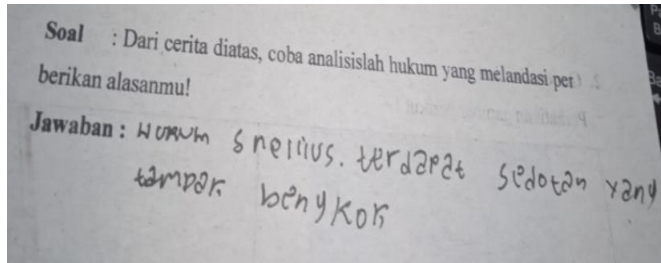 Soal : Dari cerita diatas, coba analisislah hukum yang melandasi per
berikan alasanmu!
Jawaban : Hukum Snellius. terdapat sedotan yang
tampak bengkok